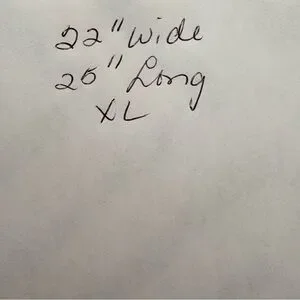 22" Wide
25" Long
XL